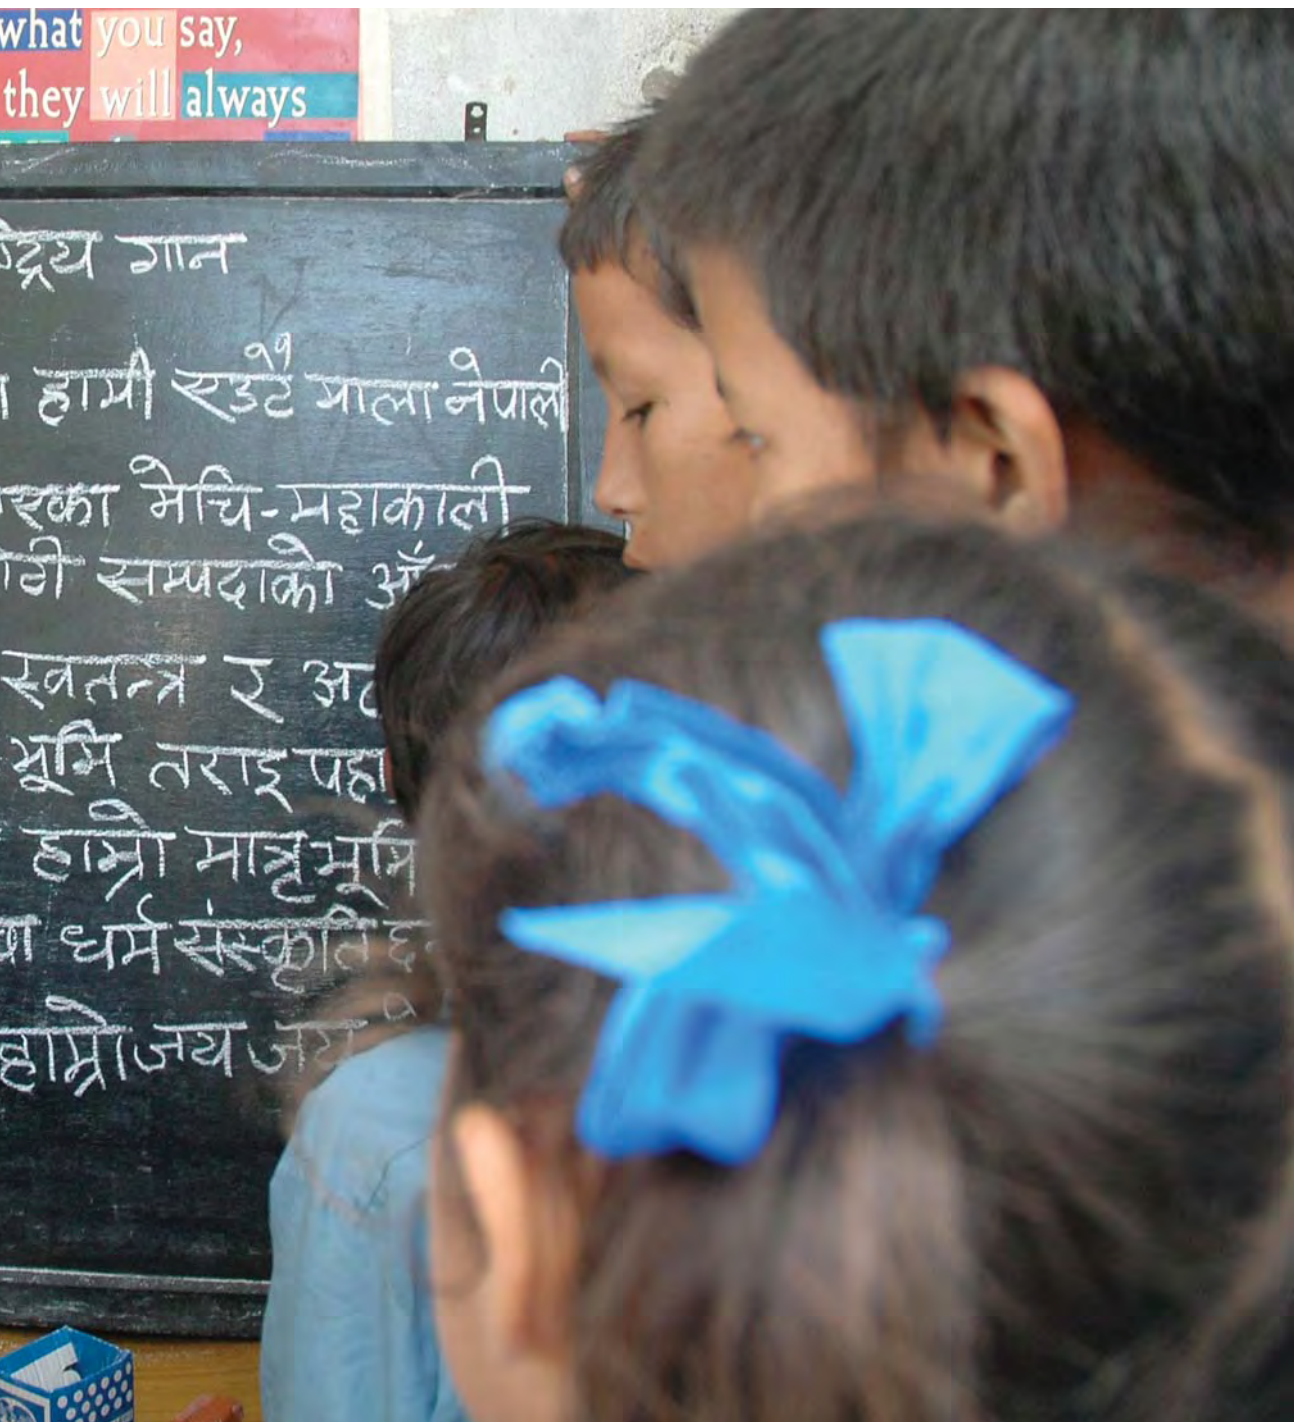 what you say,
they will always
गान
हामी एउटै माला नेपाली
मेचि-महाकाली
सम्पदाको
स्वतन्त्र र
भूमि तराइ
हाम्रो मातृभूमि
धर्म संस्कृति
हाम्रो जय जय